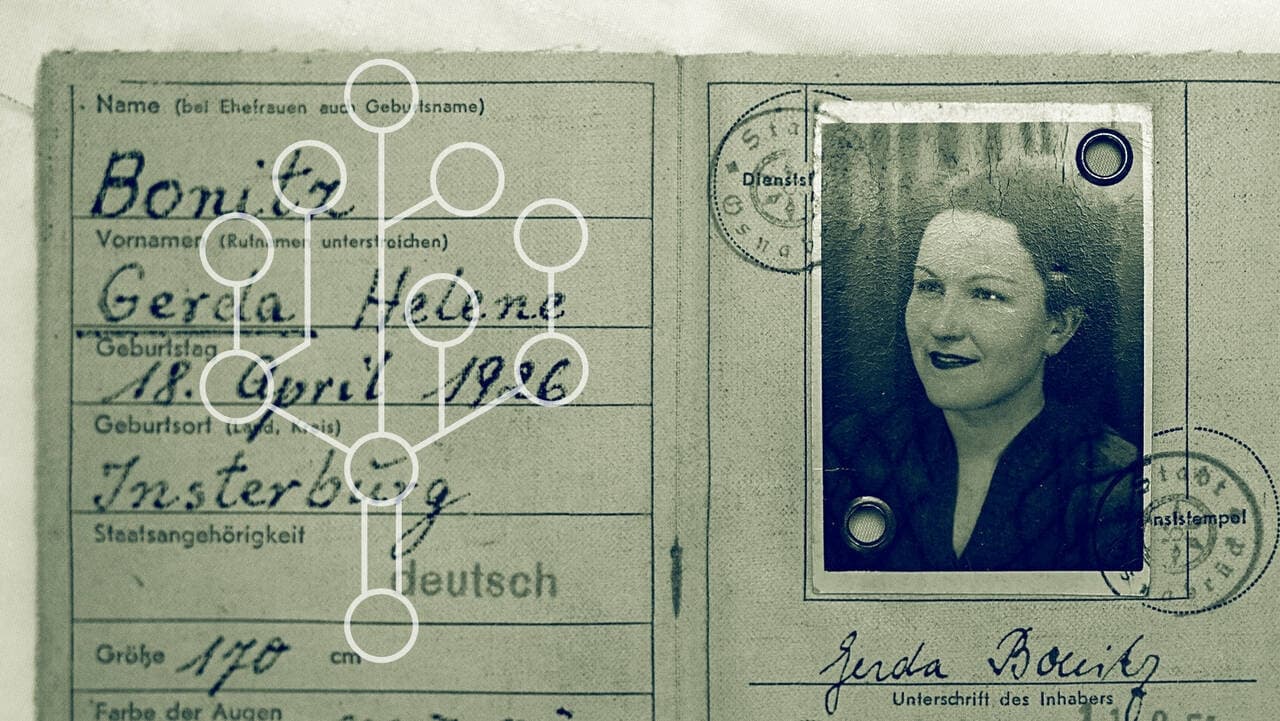 Name (bei Ehefrauen auch Geburtsname)
Bonitz
Vornamen (Rufnamen unterstreichen)
Gerda Helene
Geburtstag
18. April 1926
Geburtsort (Land, Kreis)
Insterburg
Staatsangehörigkeit
deutsch
Größe 170 cm
Farbe der Augen
Dienstst
Stadt
Dienststempel
Gerda Bonitz
Unterschrift des Inhabers